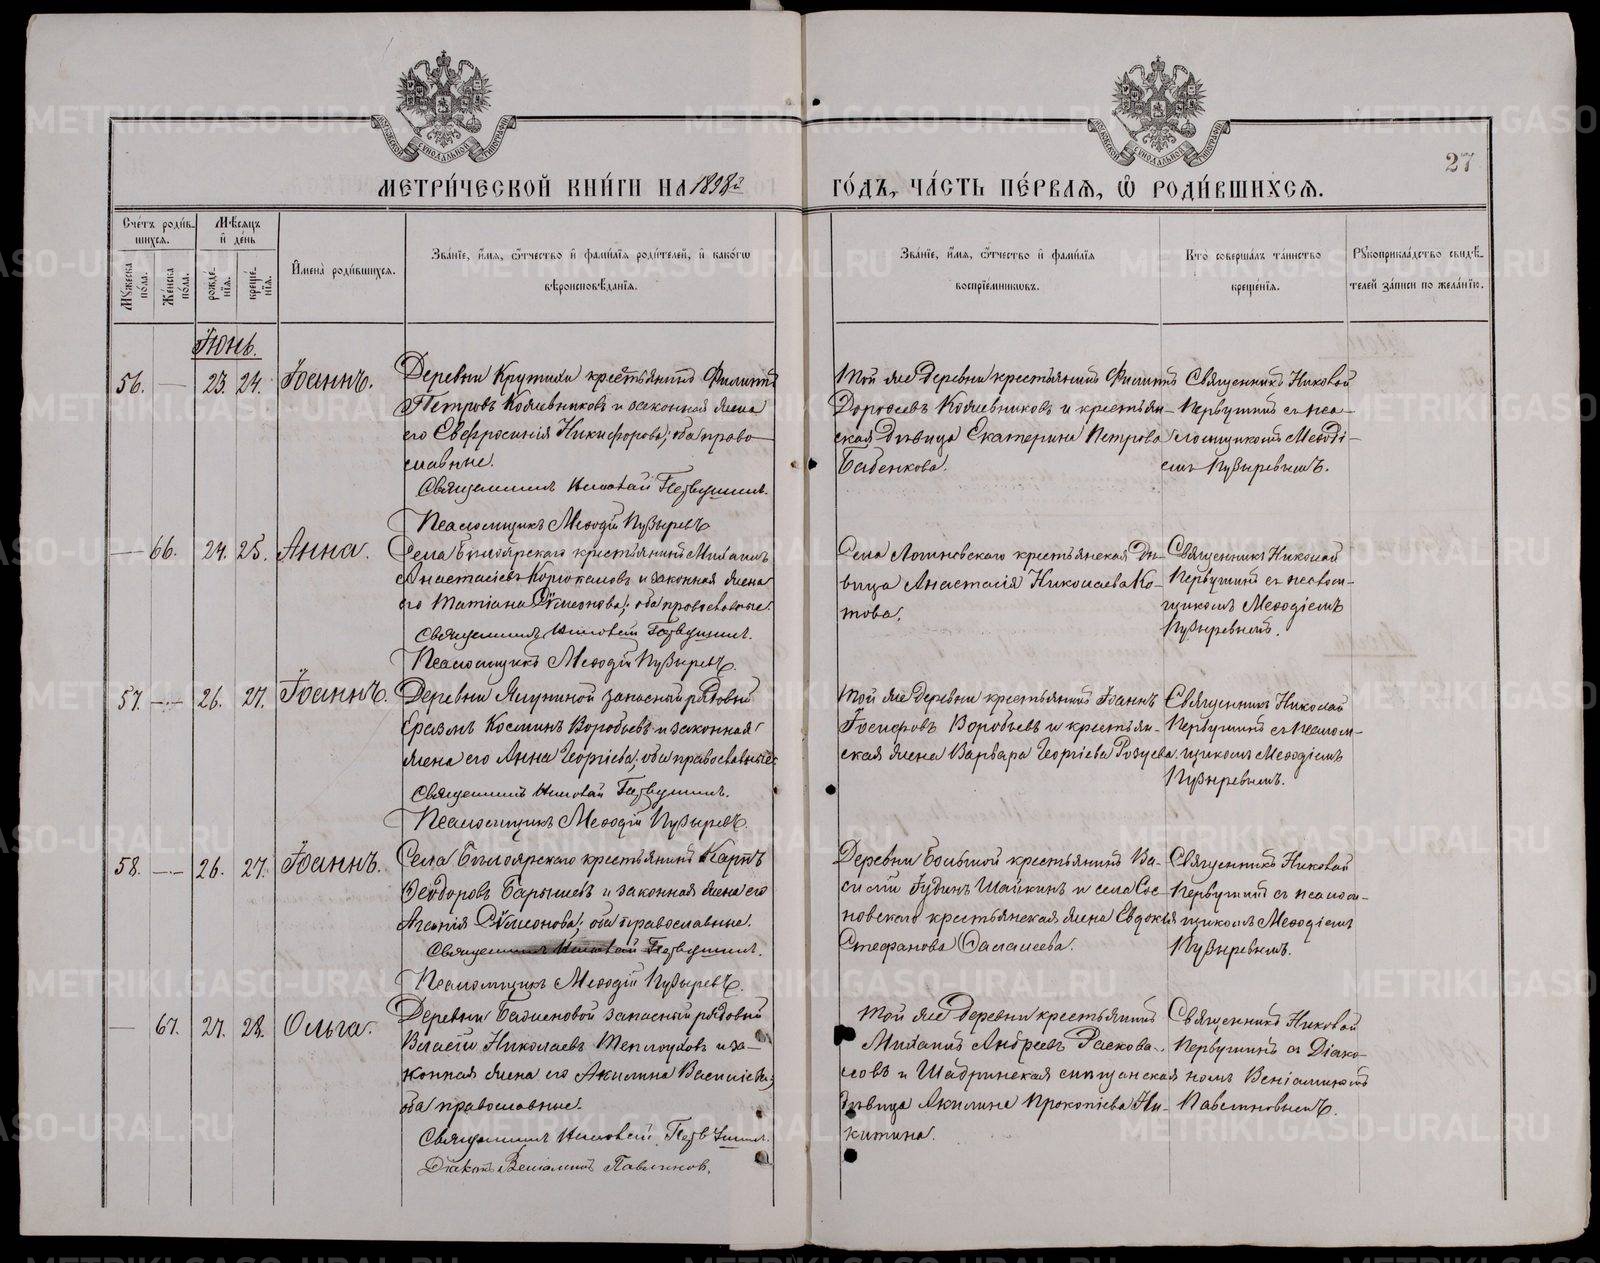 МЕТРИ́ЧЕСКОЙ КНИ́ГИ НА 1898й
ГО́ДЪ, ЧА́СТЬ ПЕ́РВАѦ, Ѽ РОДИ́ВШИХСѦ.
27
Сче́тъ роди́в-
шихсѧ.
Мѣ́сѧцъ
и҆ де́нь
Мꙋ́жеска
по́ла.
Же́нска
по́ла.
рожде́-
нїѧ.
креще́-
нїѧ.
И҆мена̀ роди́вшихсѧ.
Зва́нїе, и҆́мѧ, ѻ҆́тчество и҆ фами́лїѧ роди́телей, и҆ како́гѡ
вѣроисповѣ́данїѧ.
Зва́нїе, и҆́мѧ, ѻ҆́тчество и҆ фами́лїѧ
воспрїе́мникѡвъ.
Кто̀ соверша́лъ та́инство
креще́нїѧ.
Рꙋкоприкла́дство свидѣ́-
телей за́писи по жела́нїю.
Іюнь.
56. — 23. 24. Іоаннъ.
Деревни Крутихи крестьянинъ Филиппъ
Петровъ Кожевниковъ и законная жена
его Евфросинія Никифорова; оба право-
славные.
Священникъ Николай Первушинъ.
Псаломщикъ Меѳодій Пузыревъ
Той же деревни крестьянинъ Филиппъ
Дороѳеевъ Кожевниковъ и крестьян-
ская дѣвица Екатерина Петрова
Бабенкова.
Священникъ Николай
Первушинъ съ пса-
ломщикомъ Меѳоді-
емъ Пузыревымъ.
— 66. 24. 25. Анна.
Села Бѣлоярскаго крестьянинъ Михаилъ
Анастасіевъ и законная жена
его Татіана Сѵмеонова; оба православные.
Священникъ Николай Первушинъ.
Псаломщикъ Меѳодій Пузыревъ.
Села Логиновскаго крестьянская дѣ-
вица Анастасія Николаева Ко-
това.
Священникъ Николай
Первушинъ съ псалом-
щикомъ Меѳодіемъ
Пузыревымъ.
57. — 26. 27. Іоаннъ.
Деревни Ялуниной запасный рядовый
Еразмъ Косминъ Воробьевъ и законная
жена его Анна Георгіева; оба православные
Священникъ Николай Первушинъ.
Псаломщикъ Меѳодій Пузыревъ.
Той же деревни крестьянинъ Іоаннъ
Іосифовъ Воробьевъ и крестьян-
ская жена Варвара Георгіева
Священникъ Николай
Первушинъ съ псалом-
щикомъ Меѳодіемъ
Пузыревымъ.
58. — 26. 27. Іоаннъ.
Села Бѣлоярскаго крестьянинъ Карпъ
Ѳеодоровъ Барышевъ и законная жена его
Агаѳія Сѵмеонова; оба православные.
Священникъ Николай Первушинъ.
Псаломщикъ Меѳодій Пузыревъ.
Деревни Большой крестьянинъ Ва-
силій Гудинъ Шайкинъ и села Сос-
новскаго крестьянская жена Евдокія
Стефанова
Священникъ Николай
Первушинъ съ псалом-
щикомъ Меѳодіемъ
Пузыревымъ.
— 67. 27. 28. Ольга.
Деревни Бабиновой запасный рядовый
Власій Николаевъ Теплоуховъ и за-
конная жена его Акилина Василіева;
оба православные.
Священникъ Николай Первушинъ.
Діаконъ Веніаминъ Павлиновъ.
Той же деревни крестьянинъ
Михаилъ Андреевъ Раскова-
ловъ и Шадринская мѣщанская
дѣвица Акилина Прокопіева Ни-
китина.
Священникъ Николай
Первушинъ съ Діако-
номъ Веніаминомъ
Павлиновымъ.
METRIKI.GASO-URAL.RU